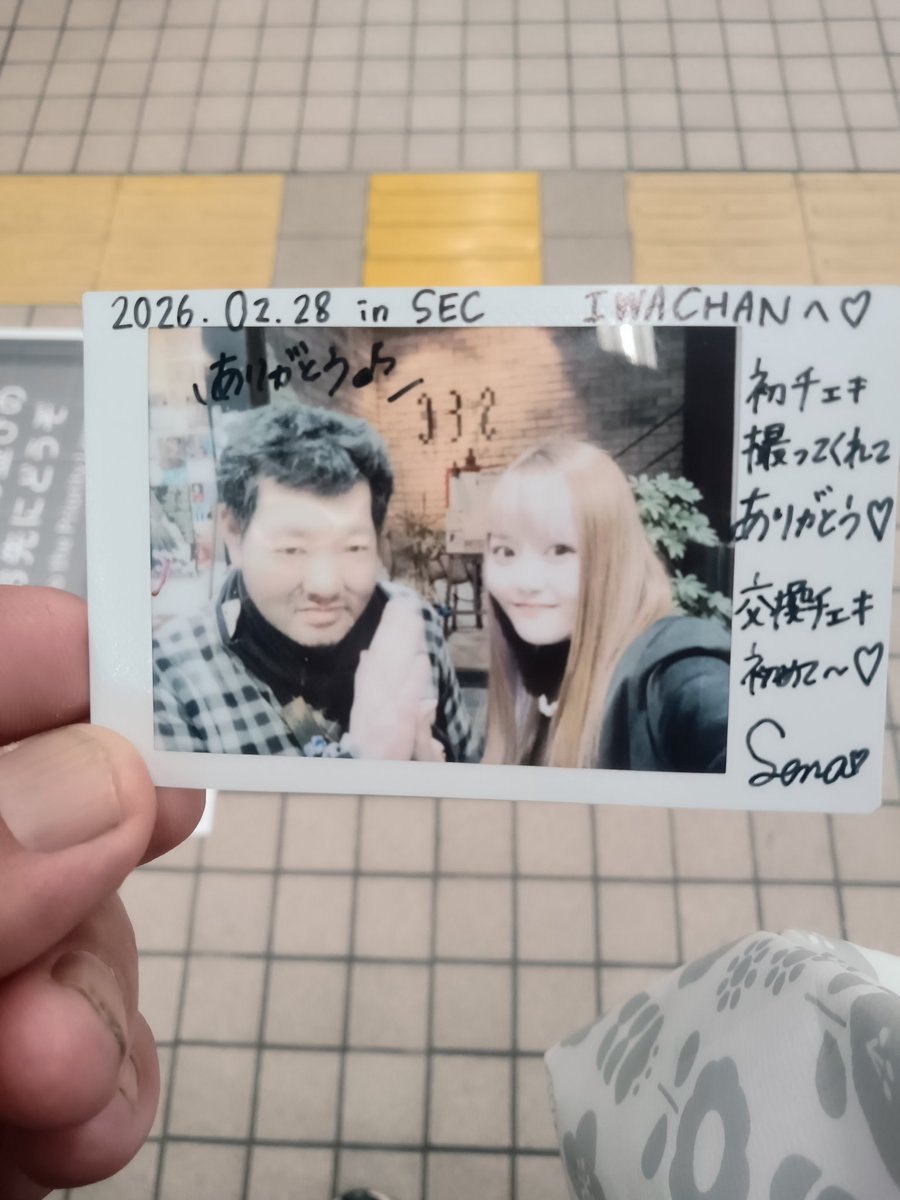 2026.02.28 in SEC
IWACHANへ♡
ありがとう♪
初チェキ
撮ってくれて
ありがとう♡
交換チェキ
初めて〜♡
Sena
先にどうぞ